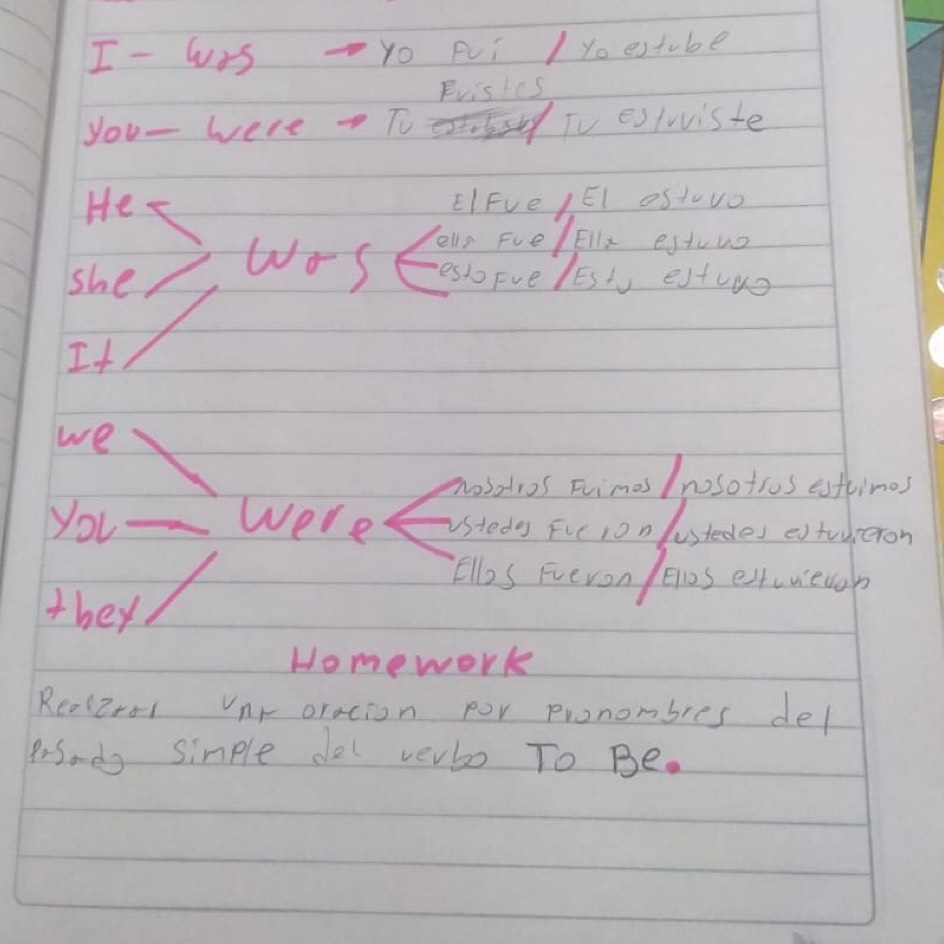 I - Was → Yo Fui / Yo estube
Fuistes
you — Were → Tu / Tu estuviste
He El Fue / El estuvo
Was ella Fue / Ella estuvo
she esto Fue / Esto estuvo
It
we
nosotros Fuimos / nosotros estuimos
You — Were ustedes Fueron / ustedes estuvieron
Ellos Fueron / Ellos estuvieron
they
Homework
Realizar una oracion por pronombres del
pasado simple del verbo To Be.